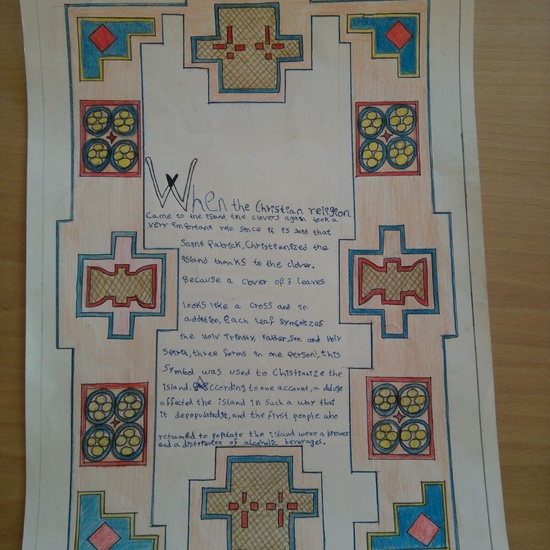 When the Christian religion
Came to the island, the clovers again took a
very important role since it is said that
Saint Patrick, Christianized the
island thanks to the clover.
Because a clover of 3 leaves
looks like a cross and in
addition, Each leaf symbolizes
the Holy Trinity, Father, Son and Holy
Spirit, three forms in one person), this
symbol was used to Christianize the
island. According to one account, a deluge
affected the island in such a way that
it depopulated it, and the first people who
returned to populate the island were a brewer
and a distributor of alcoholic beverages.